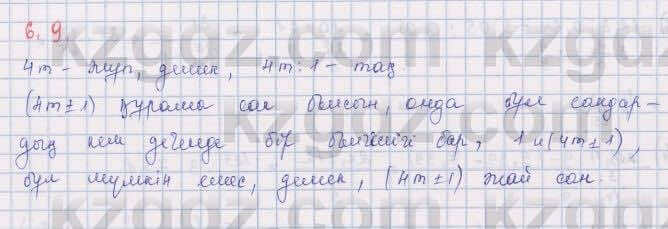 6.9
4m - жұп, демек, 4m:1 - тақ
(4m±1) құрама сан болсын, онда бұл сандар-
дың кем дегенде бір бөлгіші бар, 1 и (4m±1),
бұл мүмкін емес, демек, (4m±1) жай сан.
kzgaz.com